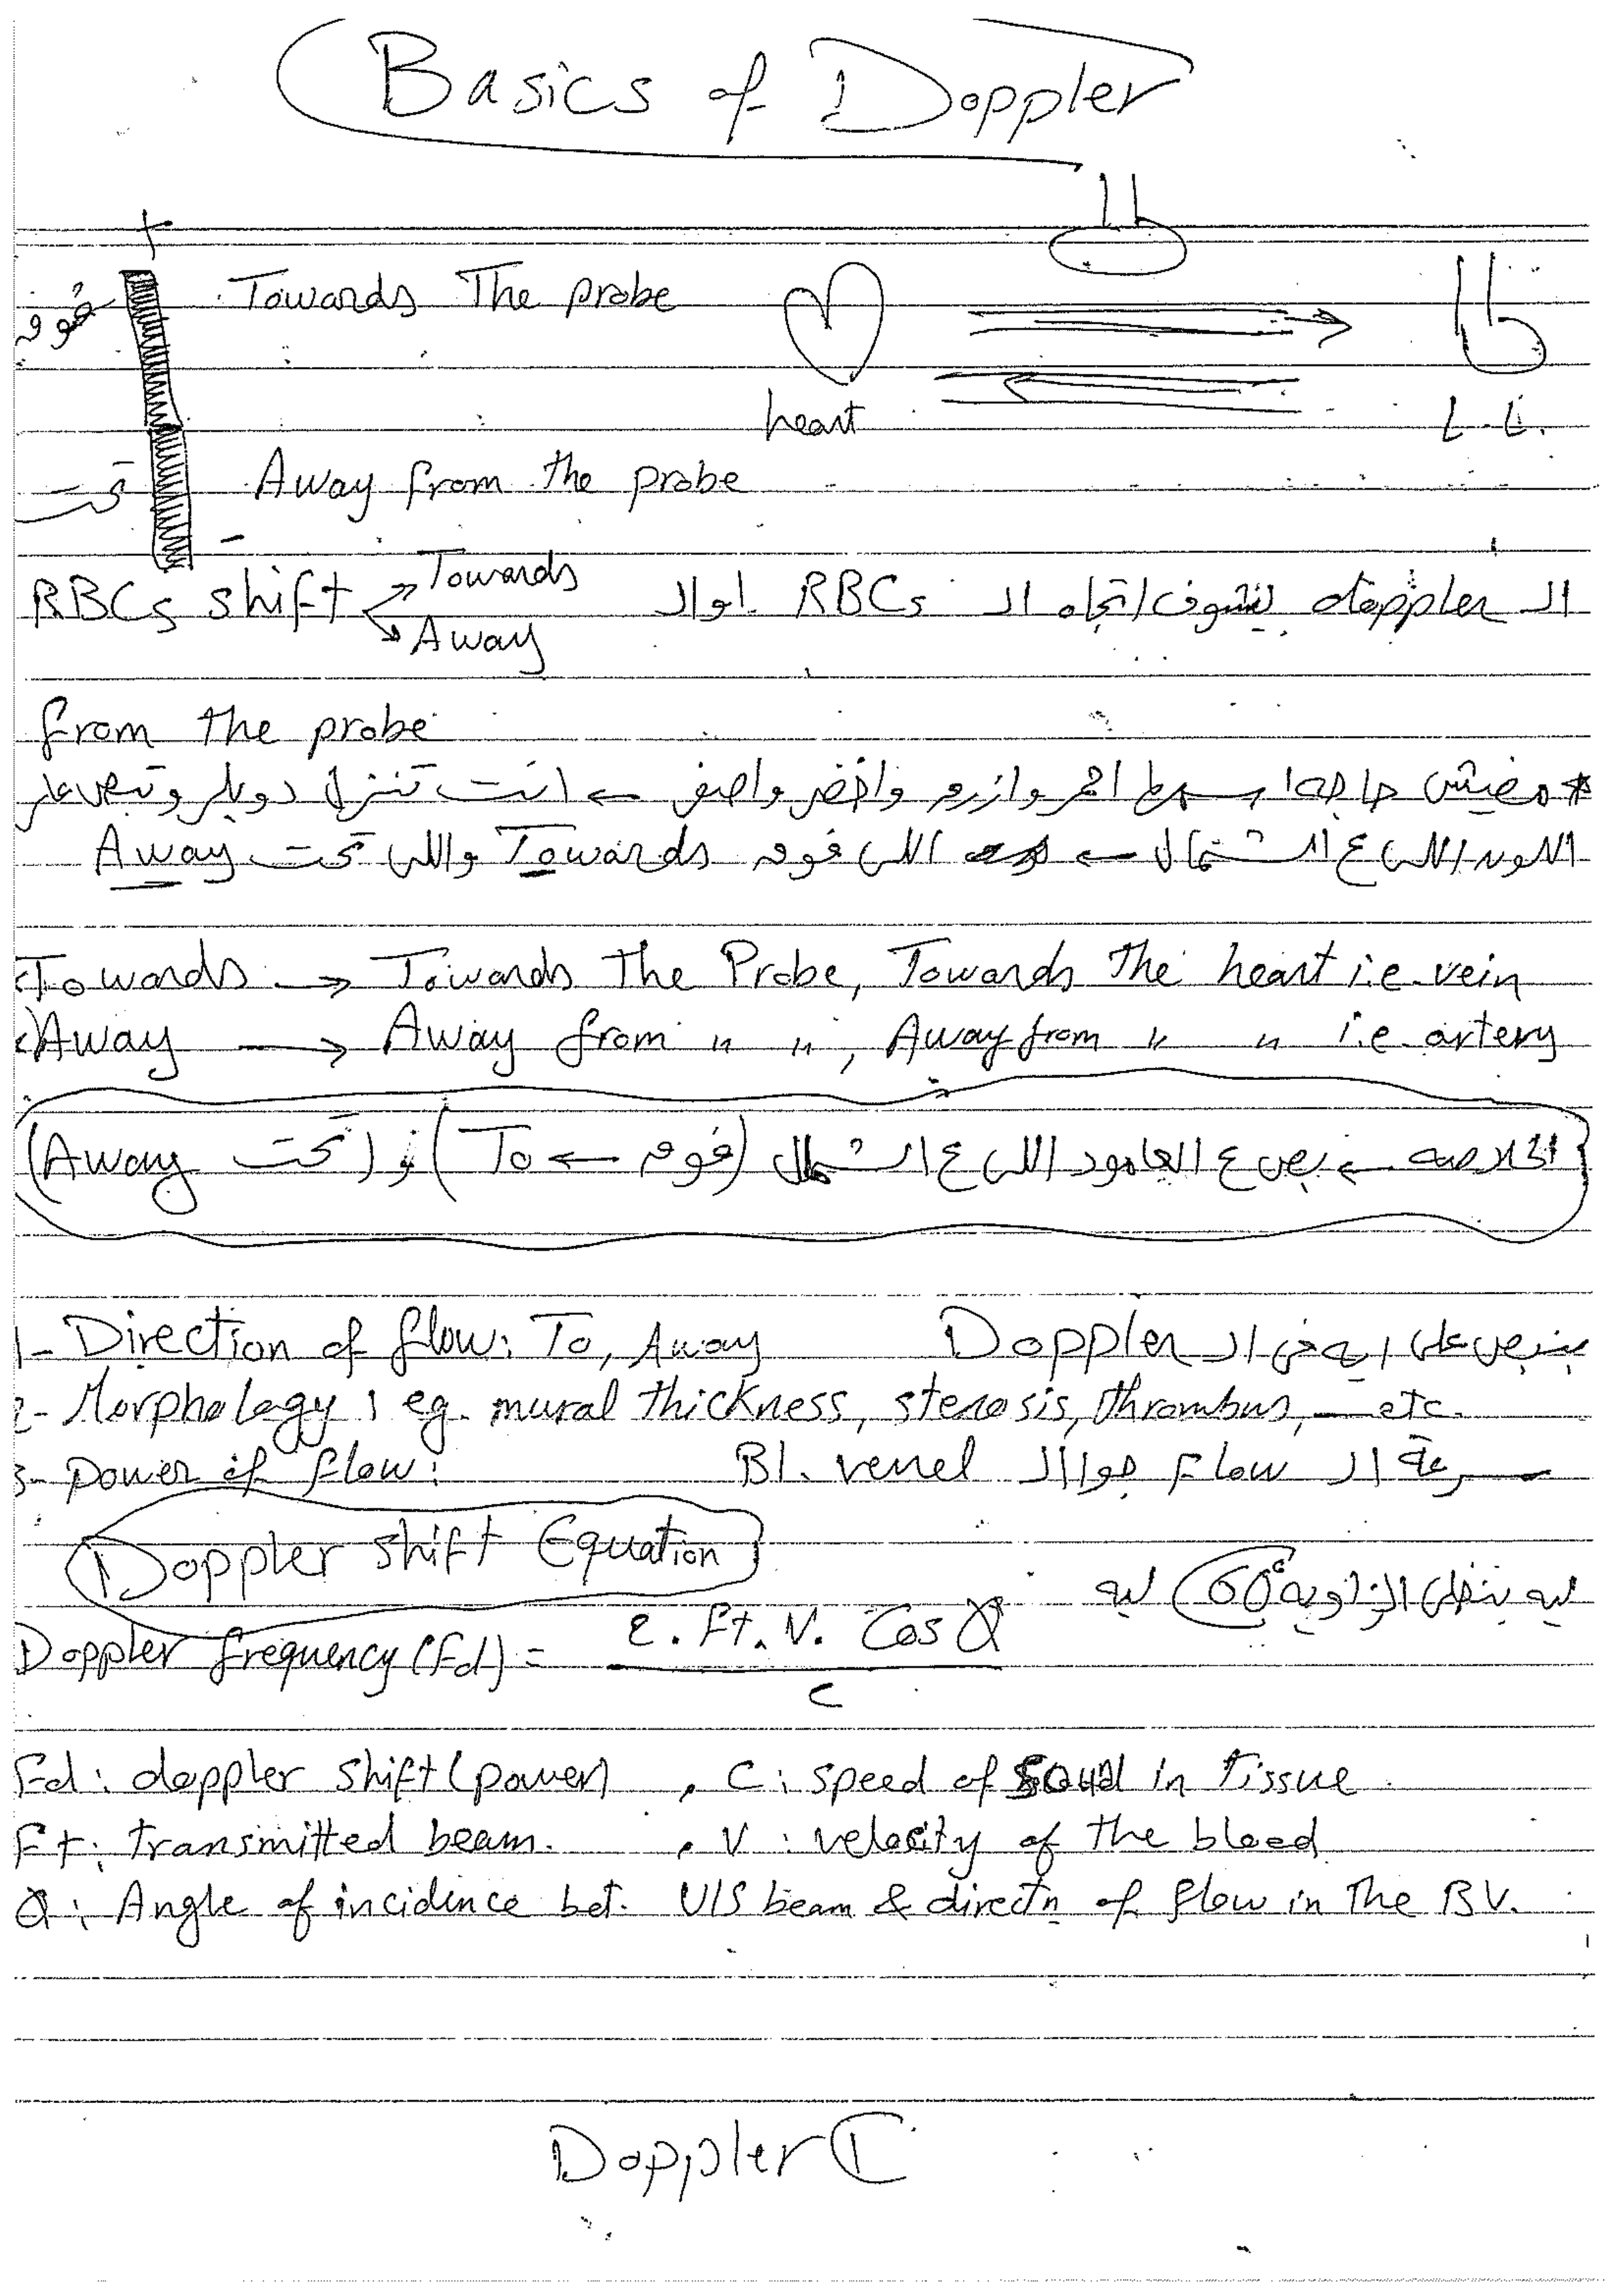 Basics of Doppler
+
فوق
Towards The probe
heart
L.L.
تحت
Away from the probe
-
RBCs shift Towards
Away
الـ doppler بيشوف اتجاه الـ RBCs لو الـ
from the probe
* مفيش حاجة اسمها احمر وازرق واخضر واصفر ← انت تنزل دوبلر وتبص على
العمود اللى ع الشمال ← اللى فوق Towards واللى تحت Away
Towards → Towards The Probe, Towards The heart i.e. vein
Away → Away from " ", Away from " " i.e. artery
الخلاصة ← بص ع العامود اللى ع الشمال (فوق ← To) و (تحت Away)
بنبص على ايه فى الـ Doppler
1- Direction of flow: To, Away
2- Morphology: eg. mural thickness, stenosis, thrombus, — etc.
3- Power of flow: سرعة الـ Flow جوا الـ Bl. vessel
Doppler shift Equation
ليه بنخلى الزاوية 60° ليه
Doppler frequency (Fd) = 2. Ft. V. Cos Q
C
Fd: doppler shift (power) , C: speed of sound in tissue
Ft: transmitted beam. , V: velocity of the blood
Q: Angle of incidence bet. U/S beam & directn of flow in The BV.
Doppler I